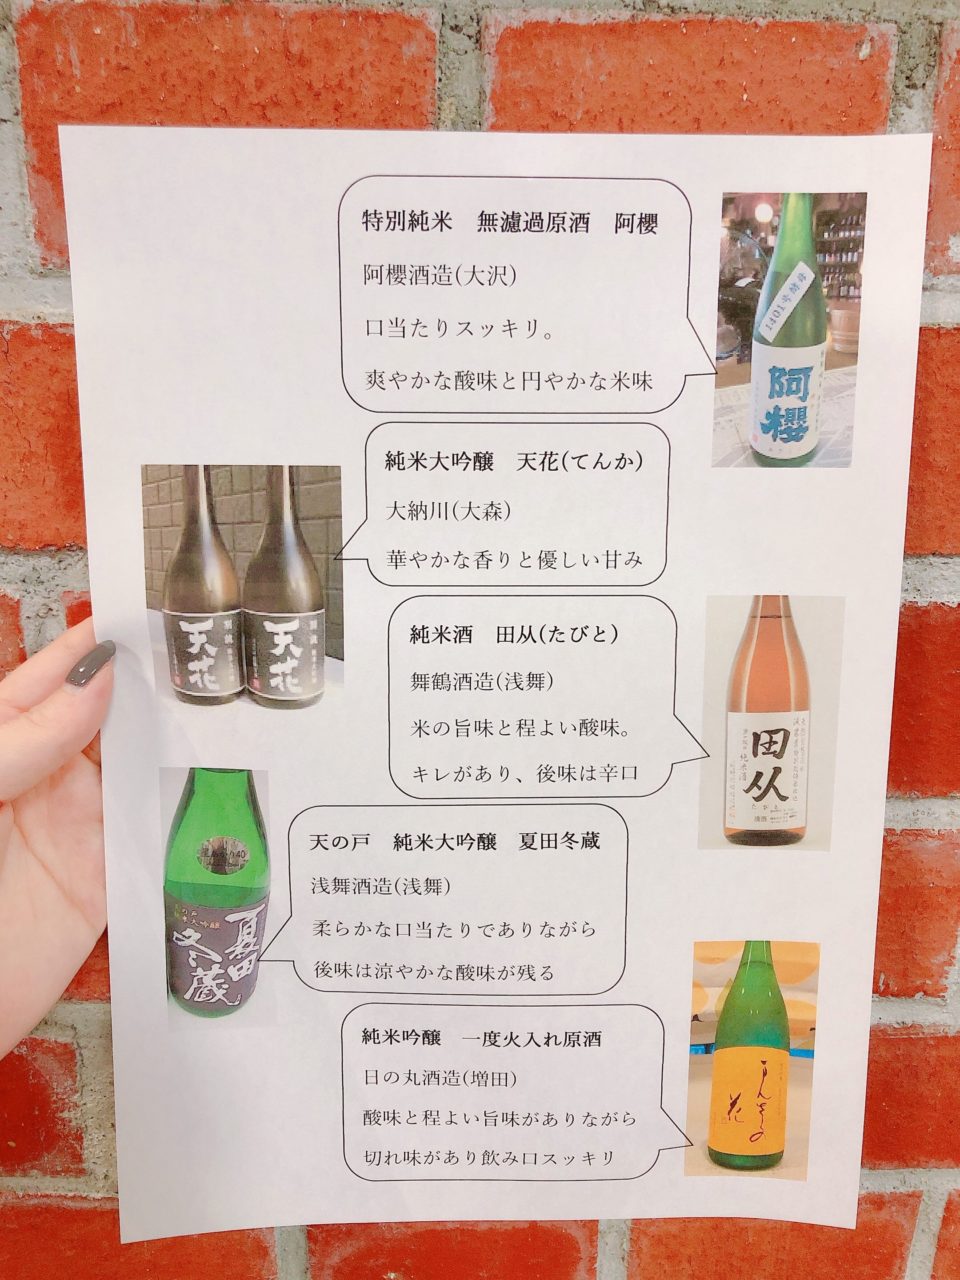 特別純米　無濾過原酒　阿櫻
阿櫻酒造(大沢)
口当たりスッキリ。
爽やかな酸味と円やかな米味
1401号酵母
阿櫻
純米大吟醸　天花(てんか)
大納川(大森)
華やかな香りと優しい甘み
天花
天花
純米酒　田从(たびと)
舞鶴酒造(浅舞)
米の旨味と程よい酸味。
キレがあり、後味は辛口
田从
純米酒
たびと
清酒
天の戸　純米大吟醸　夏田冬蔵
浅舞酒造(浅舞)
柔らかな口当たりでありながら
後味は涼やかな酸味が残る
天の戸
純米大吟醸
夏田
冬蔵
純米吟醸　一度火入れ原酒
日の丸酒造(増田)
酸味と程よい旨味がありながら
切れ味があり飲み口スッキリ
まんさくの
花